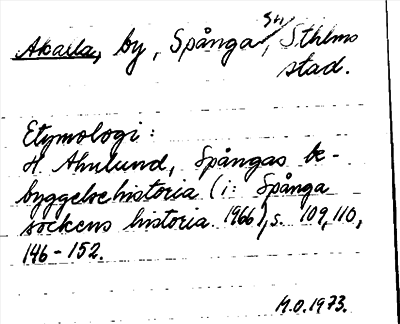 Akalla, by, Spånga sn, Sthlms
stad.
Etymologi:
H. Ahnlund, Spångas be-
byggelsehistoria (i: Spånga
sockens historia 1966), s. 109, 110,
146-152.
M.O. 1973.